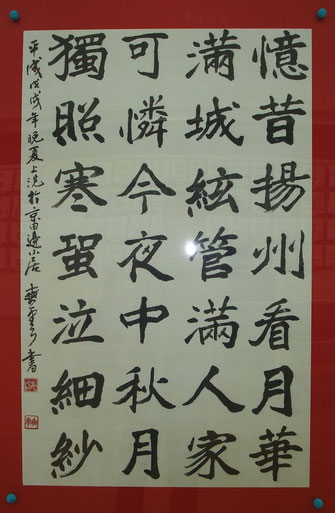 憶昔揚州看月華
滿城絃管滿人家
可憐今夜中秋月
獨照寒蛩泣細紗
平成戊戌年晩夏上浣於京田邊小居 書